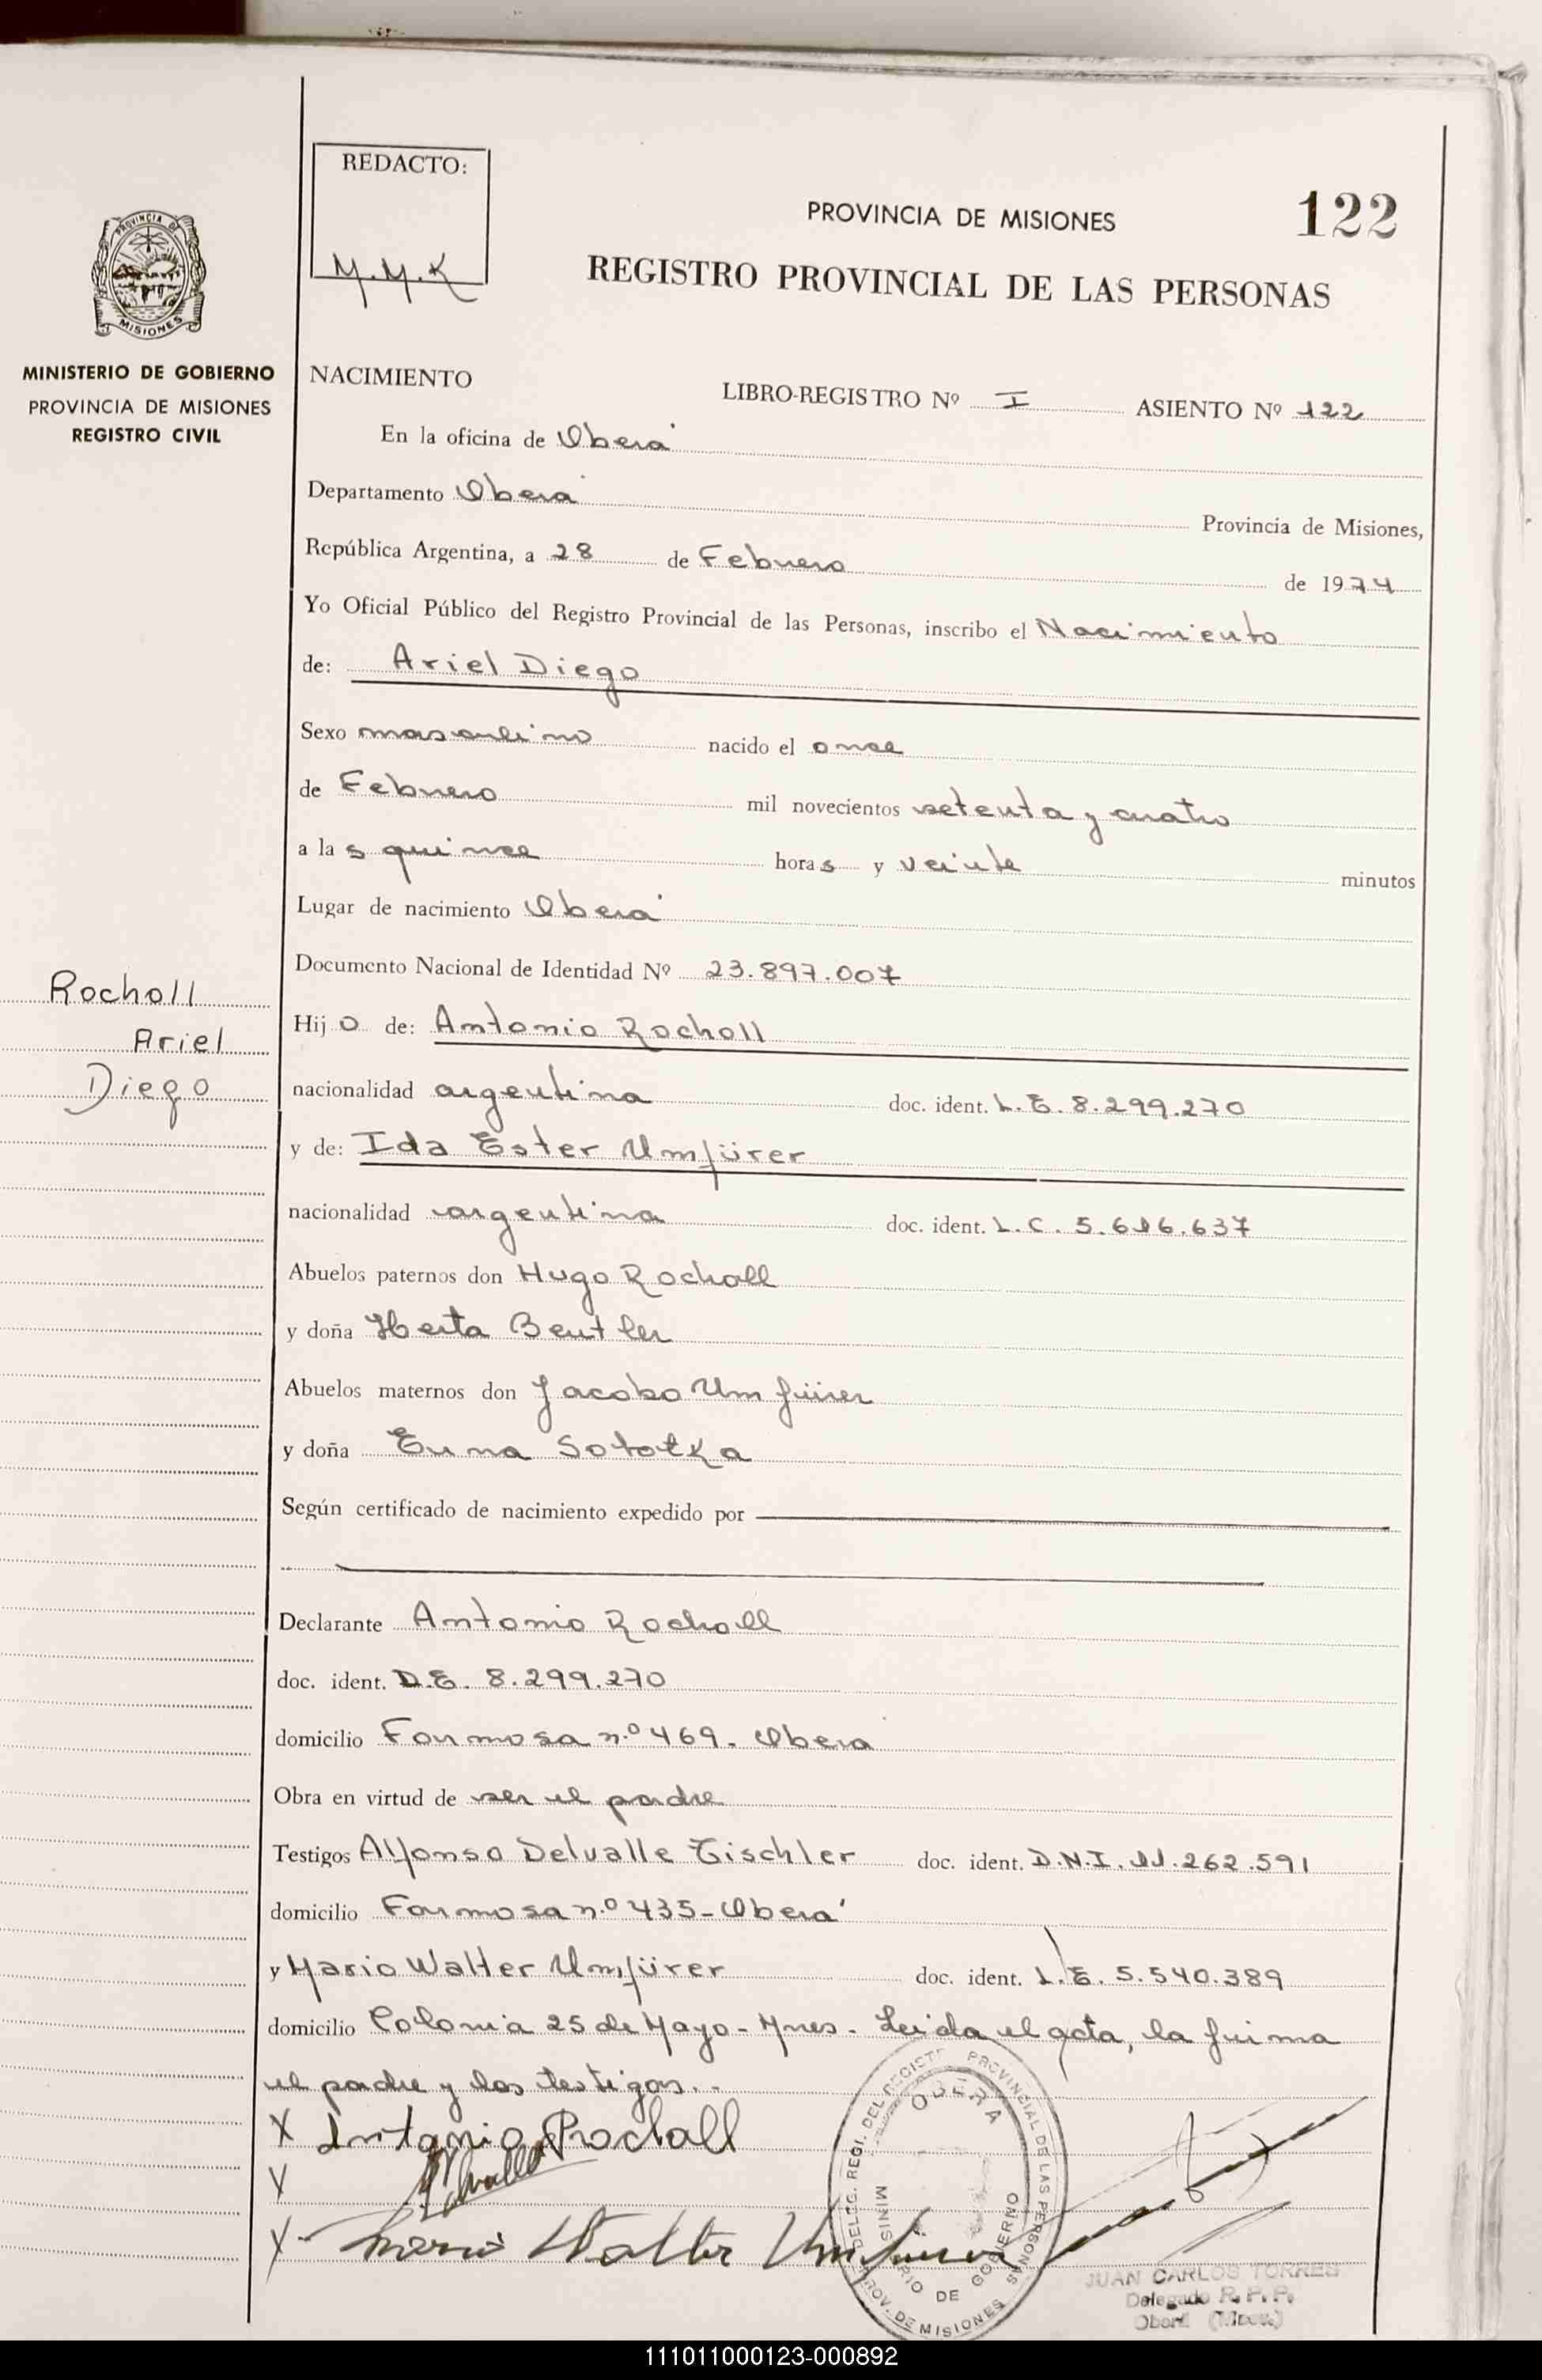 REDACTO:
M.M.K
PROVINCIA DE MISIONES
122
REGISTRO PROVINCIAL DE LAS PERSONAS
PROVINCIA DE
MISIONES
MINISTERIO DE GOBIERNO
PROVINCIA DE MISIONES
REGISTRO CIVIL
NACIMIENTO
LIBRO-REGISTRO Nº I ASIENTO Nº 122
En la oficina de Oberá
Departamento Oberá Provincia de Misiones,
República Argentina, a 28 de Febrero de 1974
Yo Oficial Público del Registro Provincial de las Personas, inscribo el Nacimiento
de: Ariel Diego
Sexo masculino nacido el once
de Febrero mil novecientos setenta y cuatro
a las quince horas y veinte minutos
Lugar de nacimiento Oberá
Documento Nacional de Identidad Nº 23.897.007
Rocholl
Ariel
Diego
Hijo de: Antonio Rocholl
nacionalidad argentina doc. ident. L.E. 8.299.270
y de: Ida Ester Umfürer
nacionalidad argentina doc. ident. L.C. 5.616.637
Abuelos paternos don Hugo Rocholl
y doña Herta Beutler
Abuelos maternos don Jacobo Umfürer
y doña Emma
Según certificado de nacimiento expedido por
Declarante Antonio Rocholl
doc. ident. D.E. 8.299.270
domicilio Formosa n.º 469. Oberá
Obra en virtud de ser el padre
Testigos Alfonso Delvalle Tischler doc. ident. D.N.I. 11.262.591
domicilio Formosa n.º 435-Oberá
y Mario Walter Umfürer doc. ident. L.E. 5.540.389
domicilio Colonia 25 de Mayo - Mnes. Leída el acta, la firma
el padre y los testigos..
X Antonio Rocholl
X
X Mario Walter Umfürer
DELEG. REGI. DEL REGIST PROVINCIAL DE LAS PERSONAS
OBERA
MINISTERIO DE GOBIERNO
PROV. DE MISIONES
JUAN CARLOS TORRES
Delegado R.P.P.
Oberá (Mnes.)
111011000123-000892